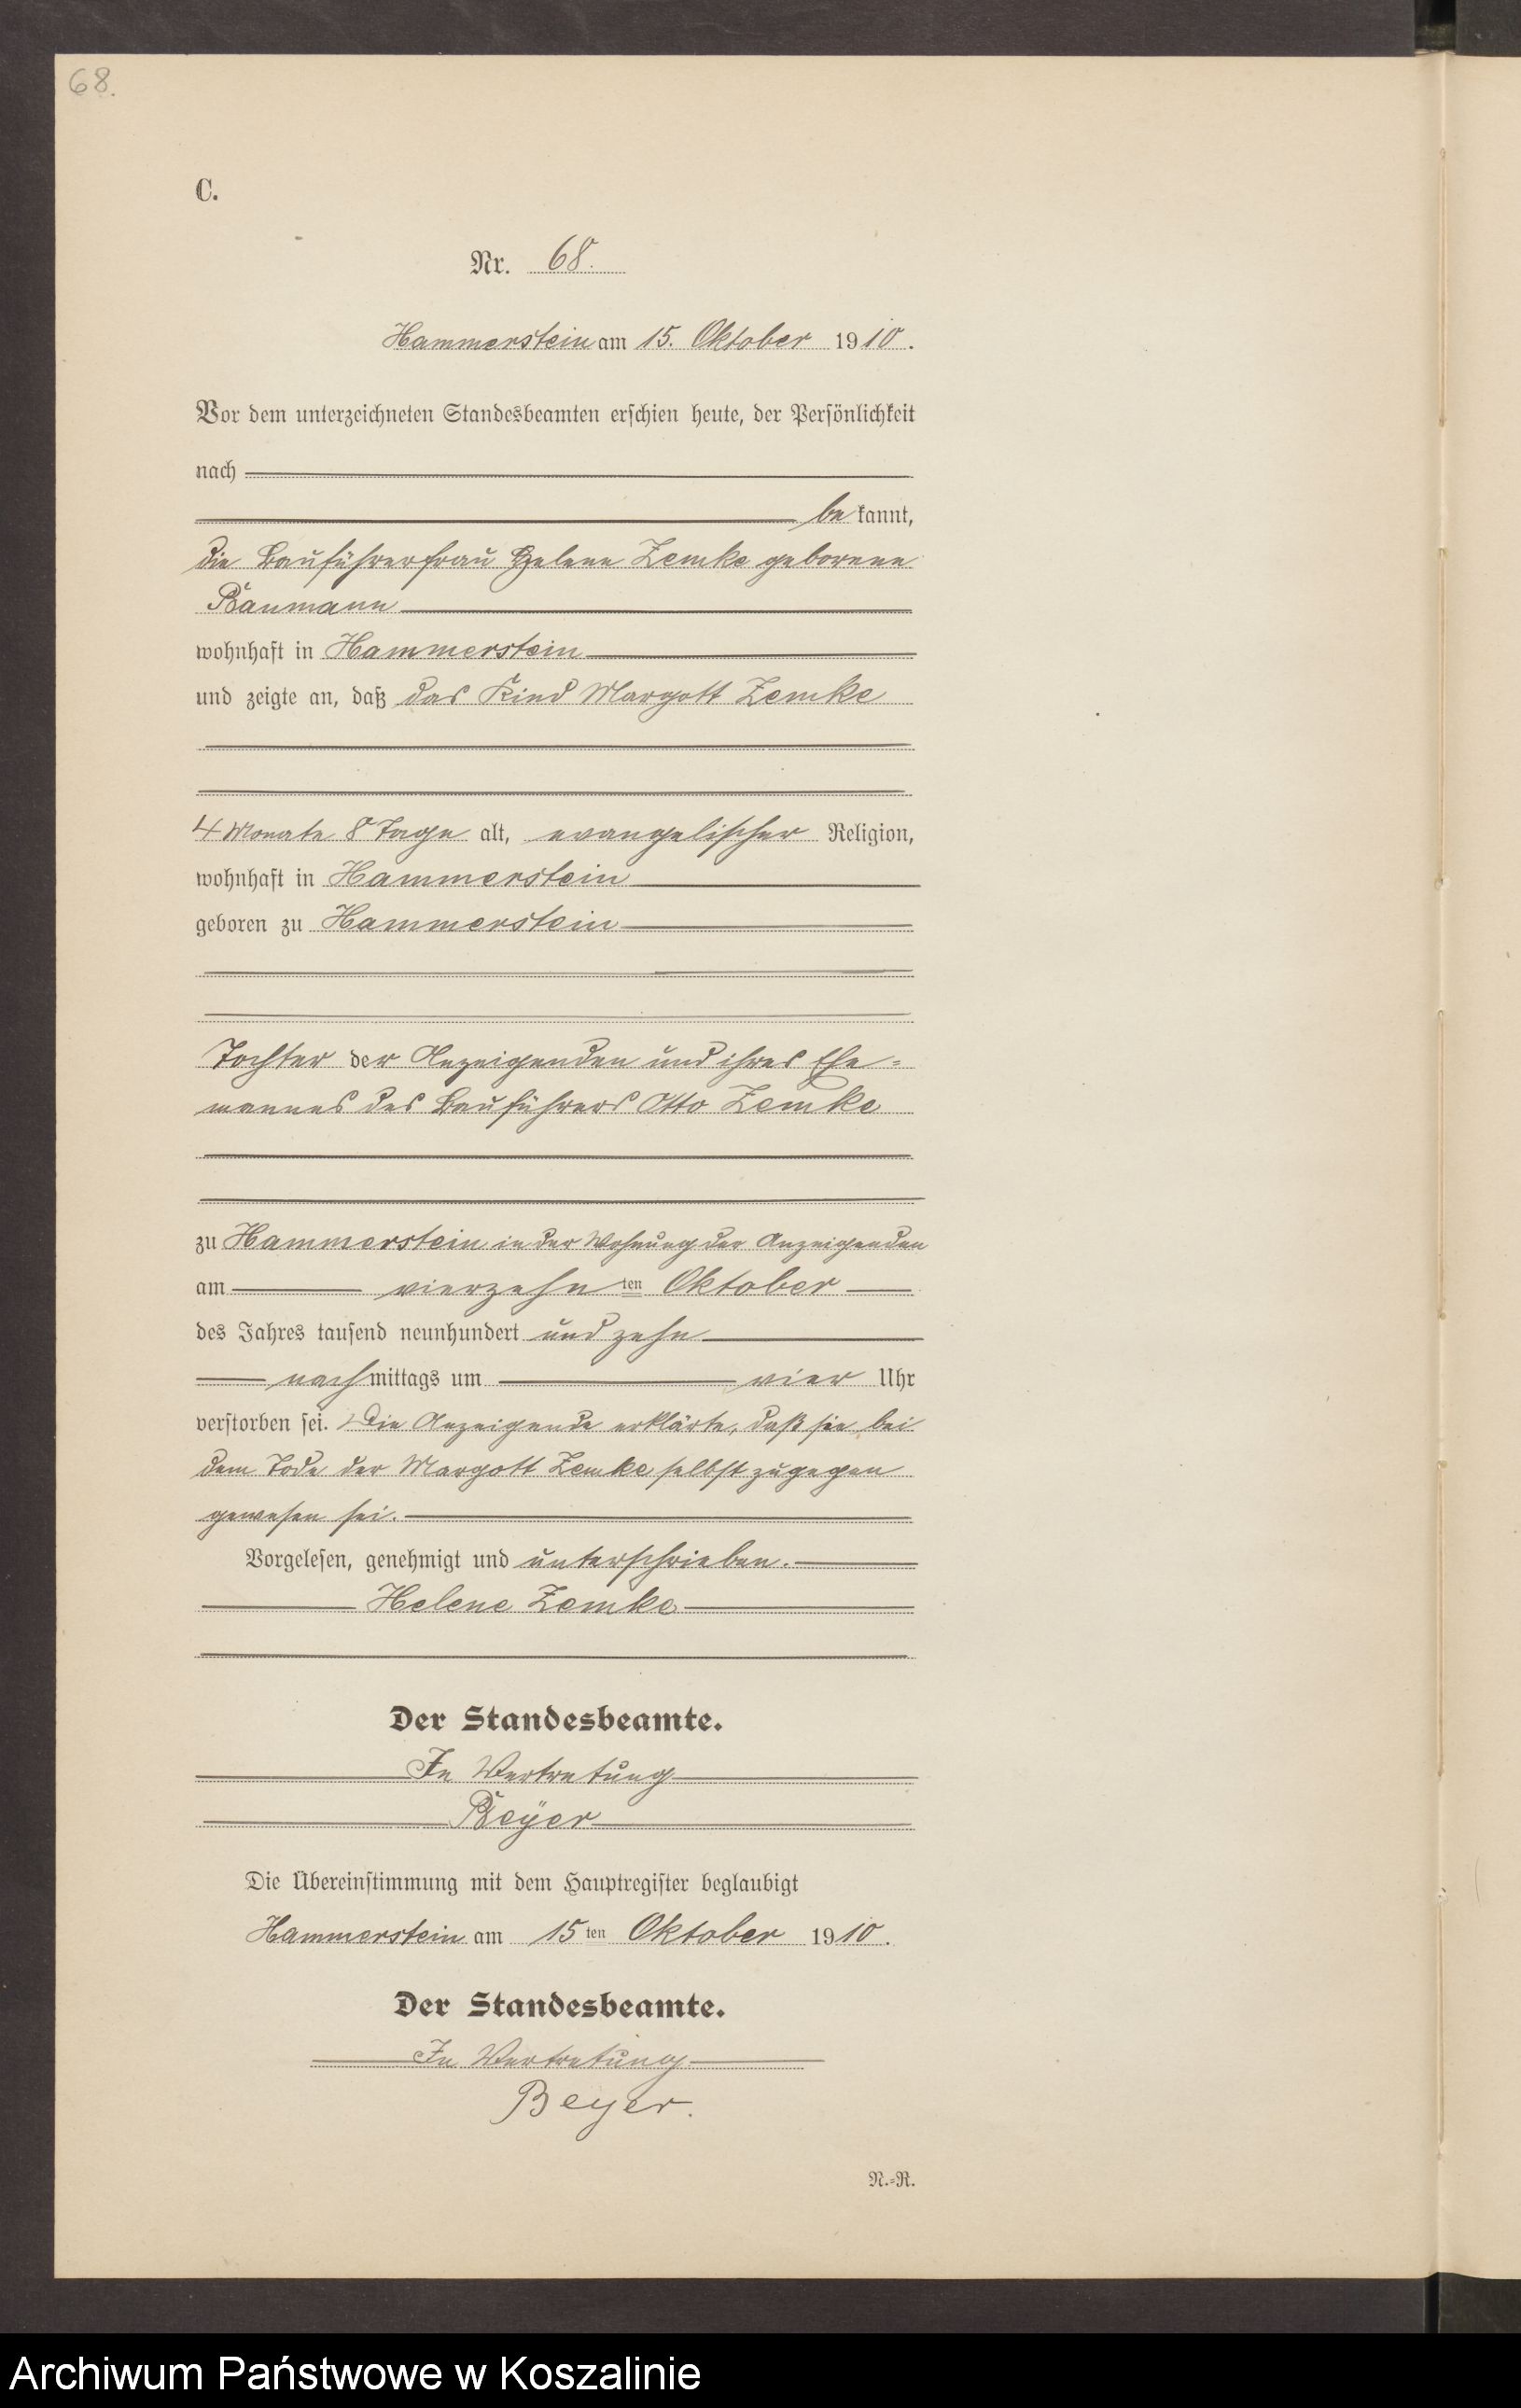 68.
C.
Nr. 68.
Hammerstein am 15. Oktober 1910.
Vor dem unterzeichneten Standesbeamten erschien heute, der Persönlichkeit
nach
be kannt,
die Bauführerfrau Helene Zemke geborene
Baumann
wohnhaft in Hammerstein
und zeigte an, daß das Kind Margott Zemke
4 Monate 8 Tage alt, evangelischer Religion,
wohnhaft in Hammerstein
geboren zu Hammerstein
Tochter der Anzeigenden und ihres Ehe-
mannes des Bauführers Otto Zemke
zu Hammerstein in der Wohnung der Anzeigenden
am vierzehn ten Oktober
des Jahres tausend neunhundert und zehn
nachmittags um vier Uhr
verstorben sei. Die Anzeigende erklärte, daß sie bei
dem Tode der Margott Zemke selbst zugegen
gewesen sei.
Vorgelesen, genehmigt und unterschrieben.
Helene Zemke
Der Standesbeamte.
In Vertretung
Beÿer
Die Übereinstimmung mit dem Hauptregister beglaubigt
Hammerstein am 15 ten Oktober 1910.
Der Standesbeamte.
In Vertretung
Beyer.
N.-R.
Archiwum Państwowe w Koszalinie